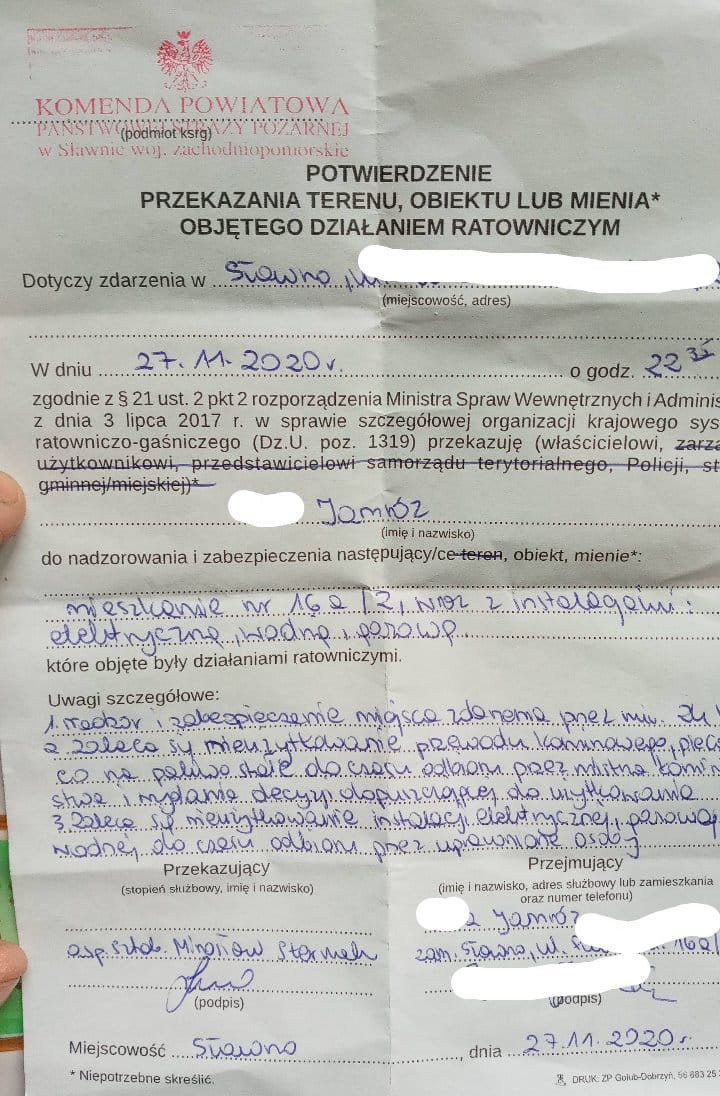 KOMENDA POWIATOWA
PAŃSTWOWEJ STRAŻY POŻARNEJ
(podmiot ksrg)
w Sławnie woj. zachodniopomorskie
POTWIERDZENIE
PRZEKAZANIA TERENU, OBIEKTU LUB MIENIA*
OBJĘTEGO DZIAŁANIEM RATOWNICZYM
Dotyczy zdarzenia w Sławno, ul.
(miejscowość, adres)
W dniu 27.11.2020r. o godz. 22 35
zgodnie z § 21 ust. 2 pkt 2 rozporządzenia Ministra Spraw Wewnętrznych i Adminis
z dnia 3 lipca 2017 r. w sprawie szczegółowej organizacji krajowego sys
ratowniczo-gaśniczego (Dz.U. poz. 1319) przekazuję (właścicielowi, zarzą
użytkownikowi, przedstawicielowi samorządu terytorialnego, Policji, st
gminnej/miejskiej)*
Jamróz
(imię i nazwisko)
do nadzorowania i zabezpieczenia następujący/ce teren, obiekt, mienie*:
mieszkanie nr 16a/2, wraz z instalacjami:
elektryczną, wodną i gazową.
które objęte były działaniami ratowniczymi.
Uwagi szczegółowe:
1. nadzór i zabezpieczenie miejsca zdarzenia przez min. 24
2. zaleca się nieużytkowanie przewodu kominowego, piec
co na paliwo stałe do czasu odbioru przez mistrza komini
stwa i wydania decyzji dopuszczającej do użytkowania
3. zaleca się nieużytkowanie instalacji elektrycznej, gazowej
wodnej, do czasu odbioru przez uprawnione osoby
Przekazujący
(stopień służbowy, imię i nazwisko)
asp. sztab. Mirosław
(podpis)
Przejmujący
(imię i nazwisko, adres służbowy lub zamieszkania
oraz numer telefonu)
a Jamróz
zam. Sławno, ul. 16a/
(podpis)
Miejscowość Sławno, dnia 27.11.2020r.
* Niepotrzebne skreślić.
DRUK: ZP Golub-Dobrzyń, 56 683 25